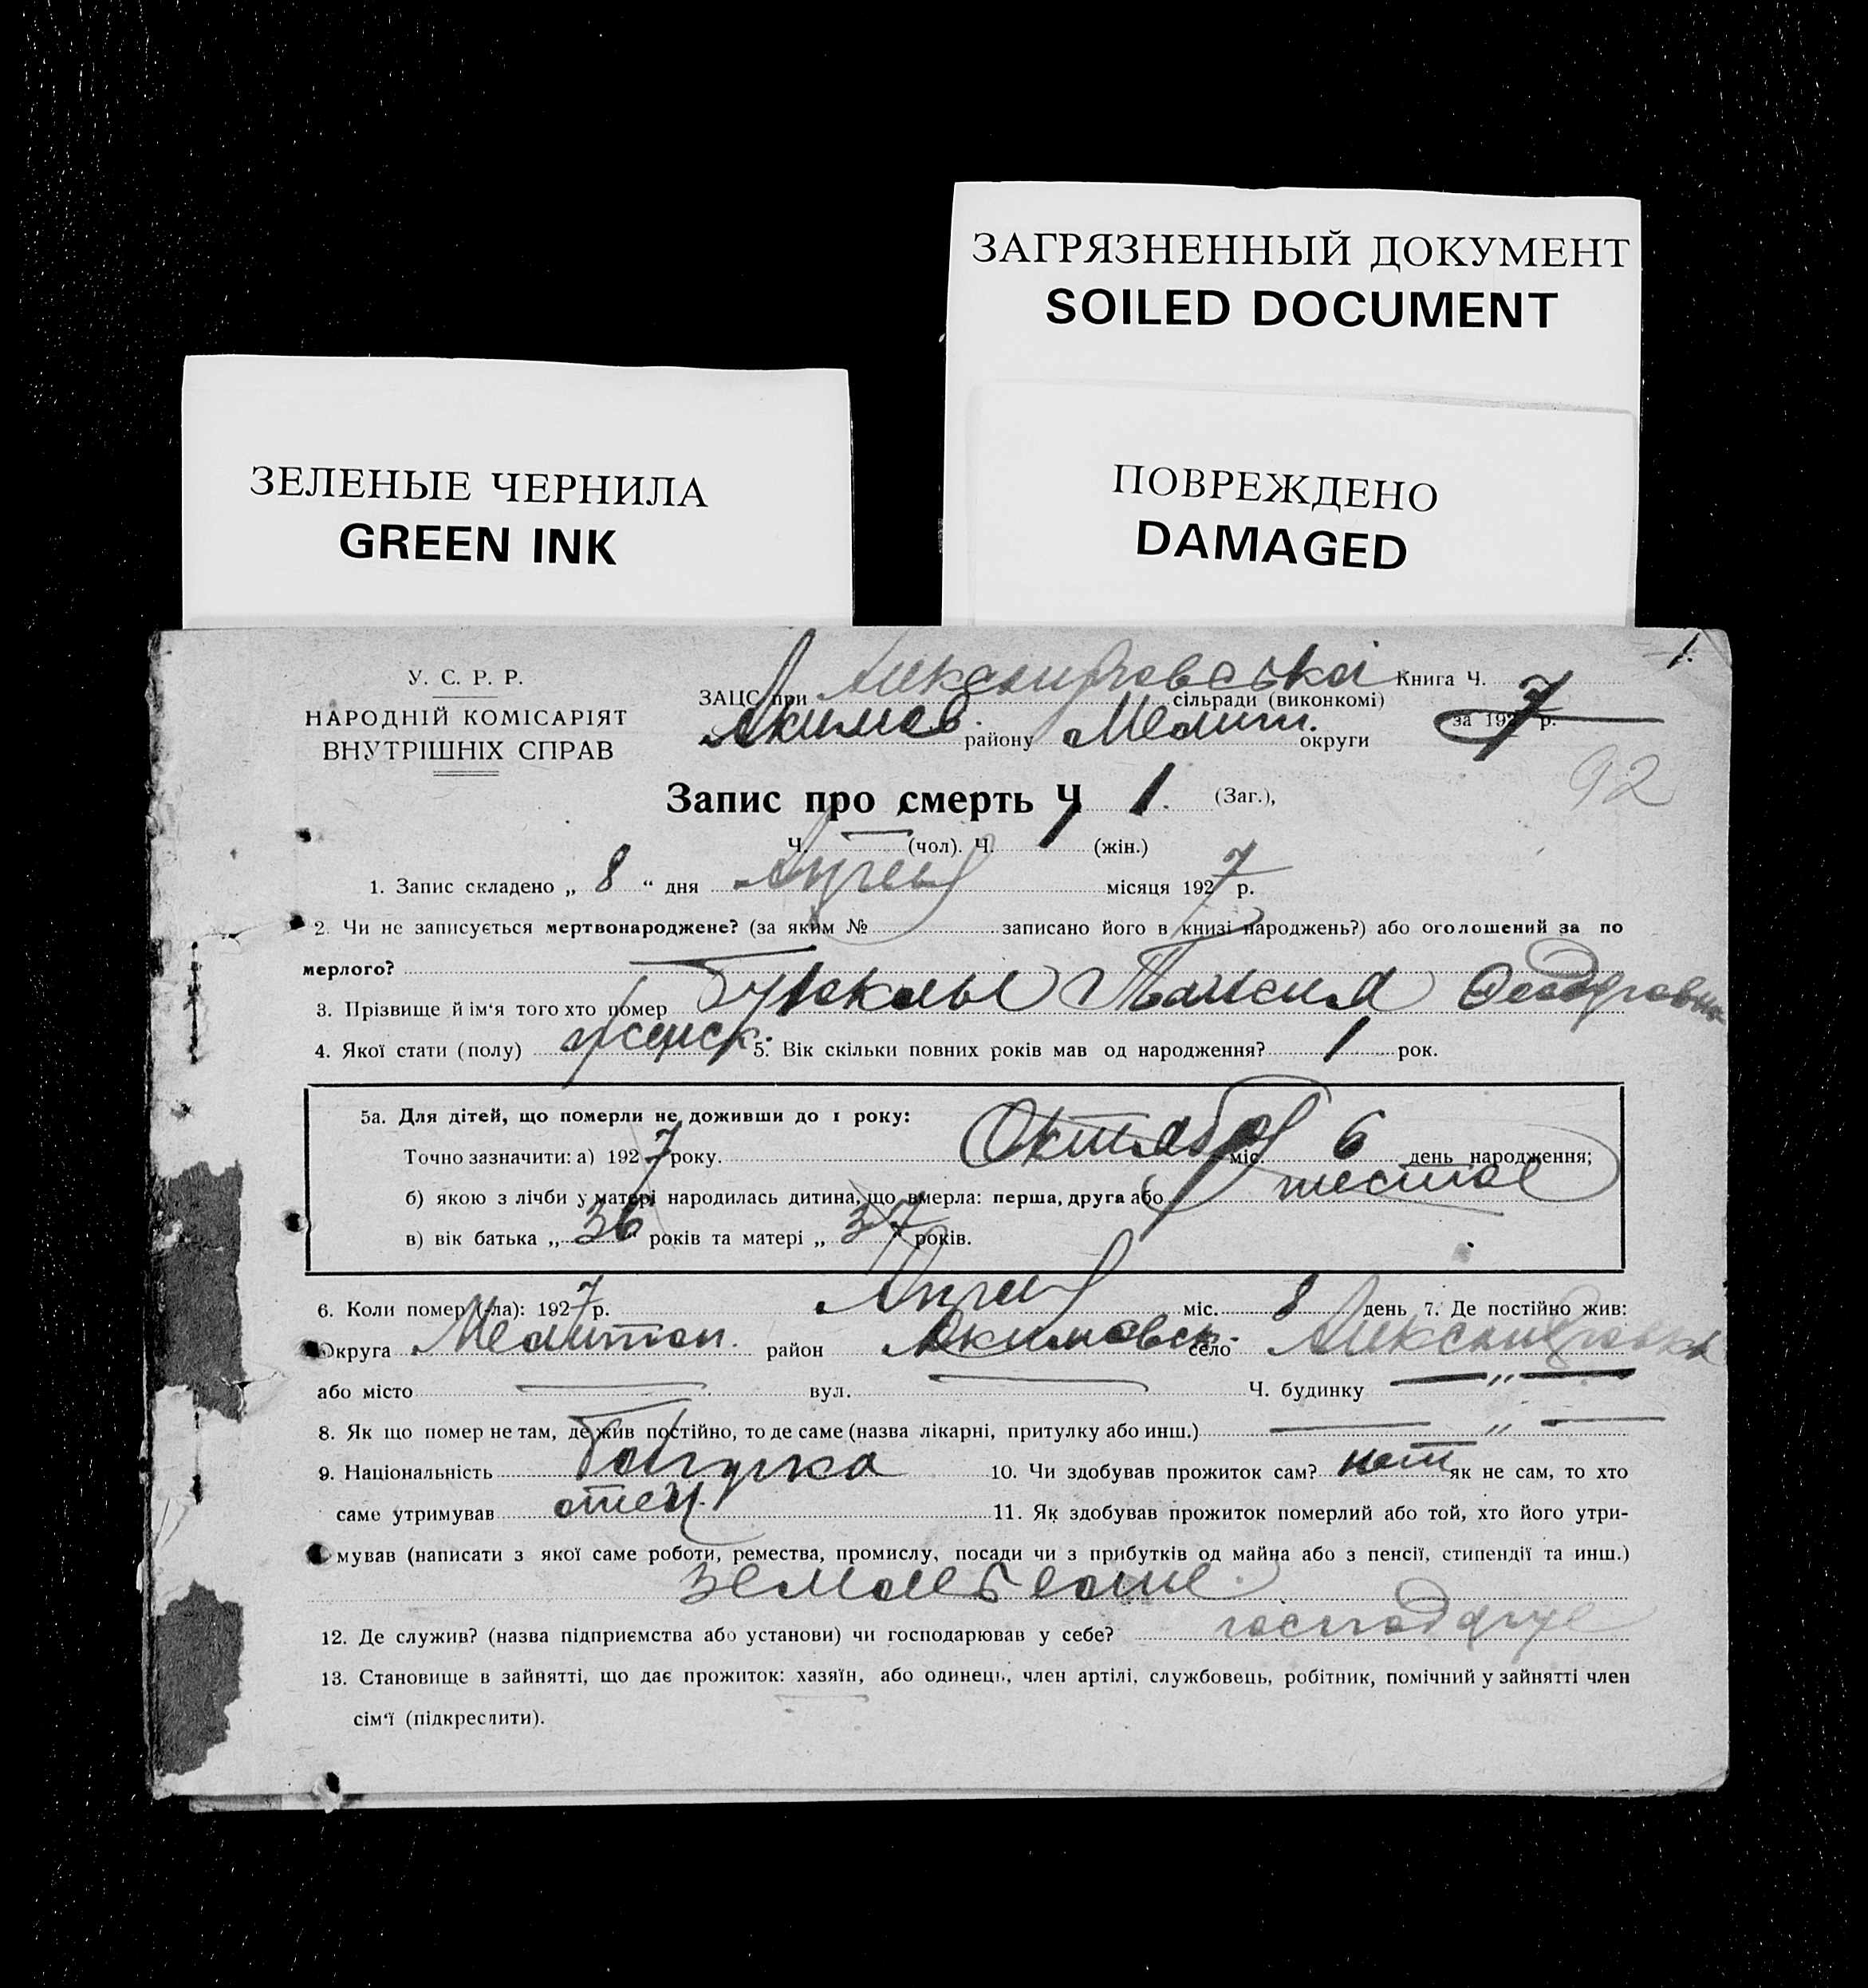 ЗАГРЯЗНЕННЫЙ ДОКУМЕНТ
SOILED DOCUMENT
ЗЕЛЕНЫЕ ЧЕРНИЛА
GREEN INK
ПОВРЕЖДЕНО
DAMAGED
1.
У. С. Р. Р.
НАРОДНІЙ КОМІСАРІЯТ
ВНУТРІШНІХ СПРАВ
ЗАЦС при Александровській сільради (виконкомі)
Акимов. району Мелит. округи
Книга Ч.
за 1927 р.
92
Запис про смерть Ч 1. (Заг.),
Ч. — (чол). Ч. 1 (жін.)
1. Запис складено „ 8 “ дня місяця 1927 р.
2. Чи не записується мертвонароджене? (за яким № записано його в книзі народжень?) або оголошений за по
мерлого?
3. Прізвище й ім'я того хто помер Феодоровна
4. Якої стати (полу) женск. 5. Вік скільки повних років мав од народження? 1 рок.
5а. Для дітей, що померли не доживши до 1 року:
Точно зазначити: а) 1927 року. Октября міс. 6 день народження;
б) якою з лічби у матері народилась дитина, що вмерла: перша, друга або шестая
в) вік батька „ 36 “ років та матері „ 37 років.
6. Коли помер (-ла): 1927 р. міс. 8 день 7. Де постійно жив:
Округа Мелитоп. район Акимовск. село Александровка
або місто — вул. — Ч. будинку — „ —
8. Як що помер не там, де жив постійно, то де саме (назва лікарні, притулку або инш.) — „ —
9. Національність Болгарка 10. Чи здобував прожиток сам? нет як не сам, то хто
саме утримував отец. 11. Як здобував прожиток померлий або той, хто його утри-
мував (написати з якої саме роботи, ремества, промислу, посади чи з прибутків од майна або з пенсії, стипендії та инш.)
12. Де служив? (назва підприємства або установи) чи господарював у себе? господарує
13. Становище в зайнятті, що дає прожиток: хазяїн, або одинець, член артілі, службовець, робітник, помічний у зайнятті член
сім'ї (підкреслити).